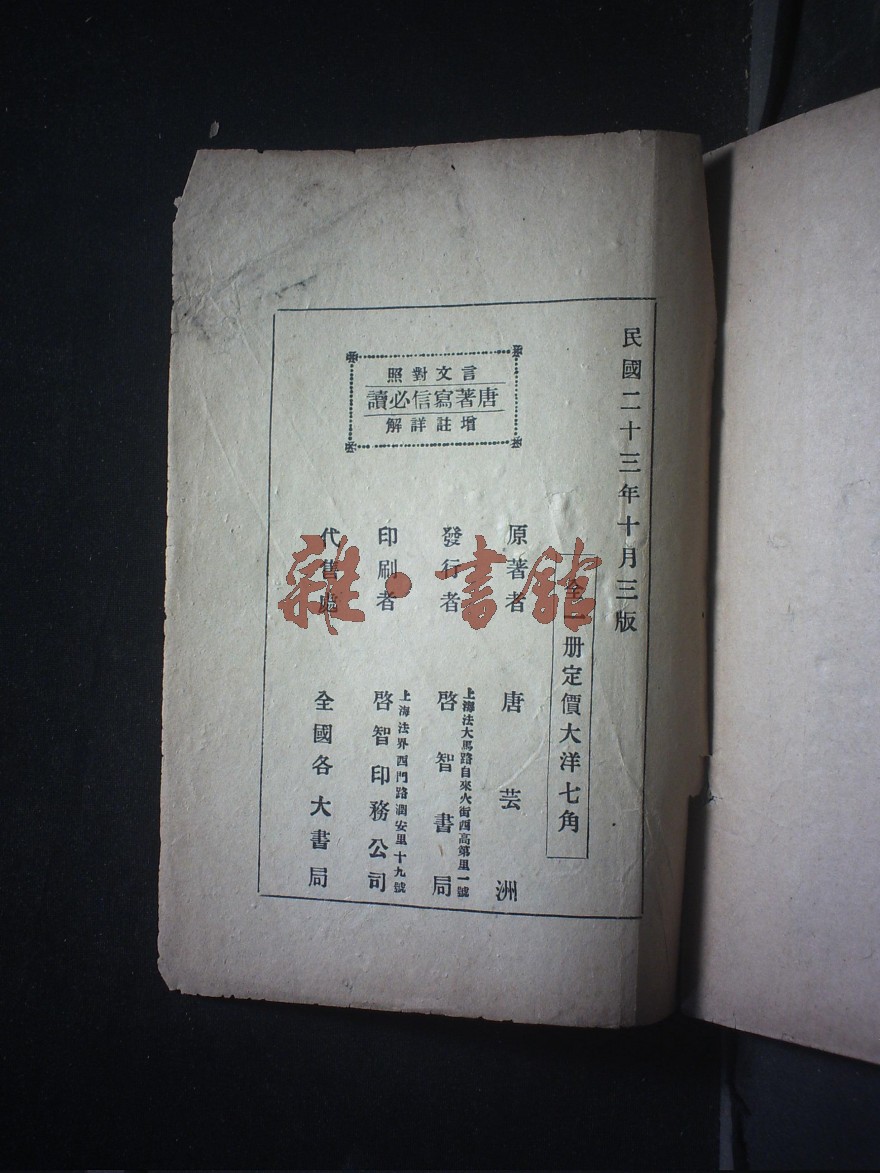 民國二十三年十月三版
言文對照
唐著寫信必讀
增註詳解
全一册定價大洋七角
原著者 唐芸洲
發行者 上海法大馬路自來火街西高第里一號 啓智書局
印刷者 上海法界西門路潤安里十九號 啓智印務公司
代售處 全國各大書局
雜·書館